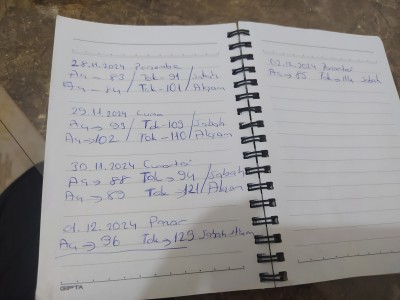 28.11.2024 Perşembe
Aç - 83 / Tok - 91 / Sabah
Aç - 84 / Tok - 101 / Akşam
29.11.2024 Cuma
Aç → 99 / Tok - 109 / Sabah
Aç → 102 / Tok - 110 / Akşam
30.11.2024 Cumartesi
Aç → 88 Tok → 94 / Sabah
Aç → 89 Tok → 121 / Akşam
01.12.2024 Pazar
Aç → 96 Tok → 129 Sabah
GIPTA
02.12.2024 Pazartesi
Aç → 85 Tok → 114 Sabah